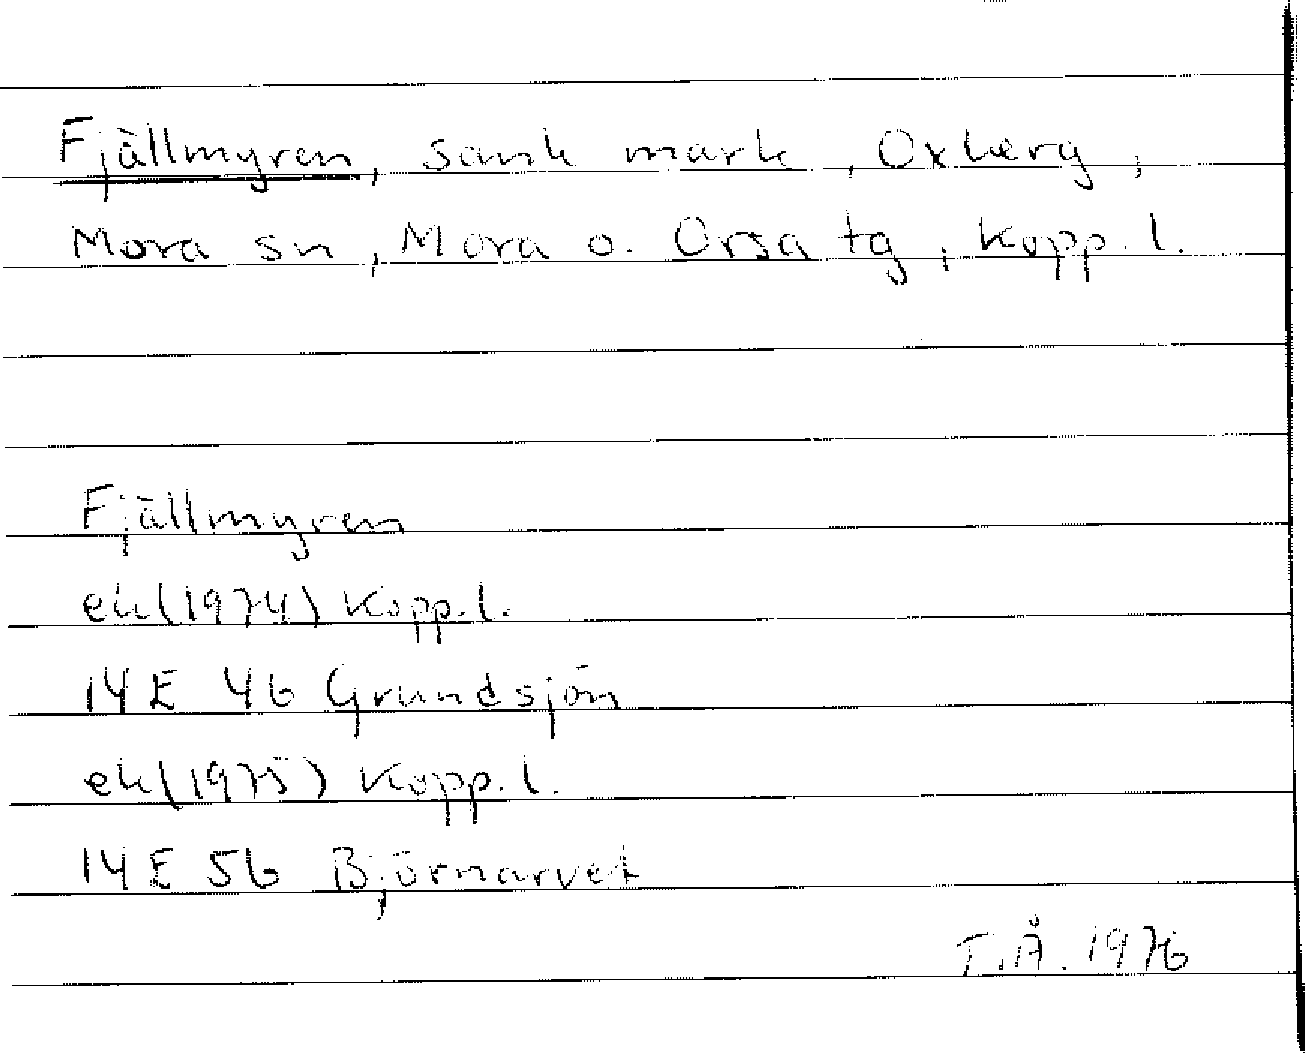 Fjällmyren, sank mark, Oxberg,
Mora sn, Mora o. Orsa tg, Kopp. l.
Fjällmyren
ek(1974) Kopp. l.
14E 4b Grundsjön
ek(1975) Kopp. l.
14E 5b Björnarvet
T.Å. 1976